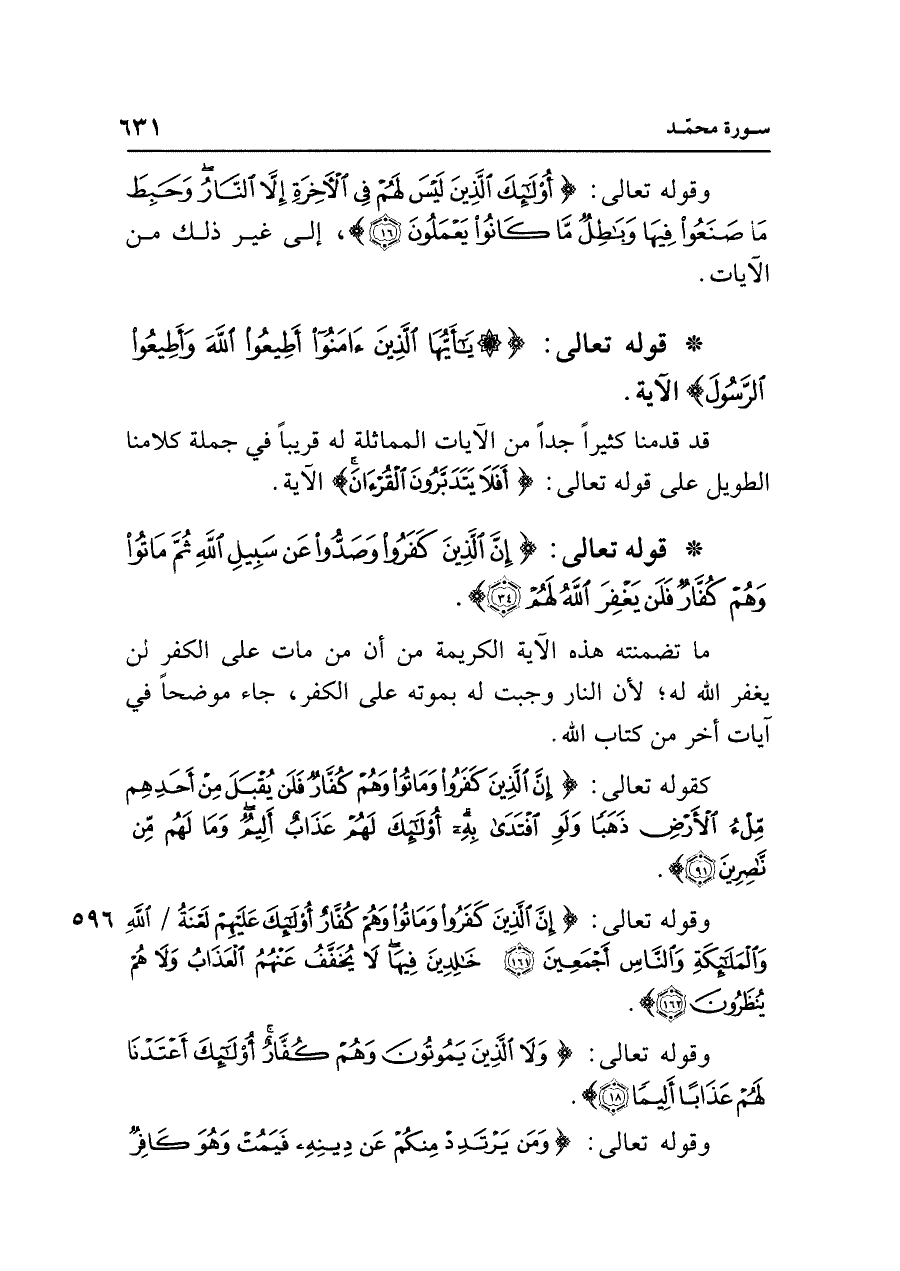 سورة محمّد ٦٣١
وقوله تعالى: ﴿ أُوْلَٰٓئِكَ ٱلَّذِينَ لَيْسَ لَهُمْ فِي ٱلْأٓخِرَةِ إِلَّا ٱلنَّارُۖ وَحَبِطَ
مَا صَنَعُواْ فِيهَا وَبَٰطِلٌ مَّا كَانُواْ يَعْمَلُونَ ١٦﴾، إلى غير ذلك من
الآيات.
* قوله تعالى: ﴿ ۞ يَٰٓأَيُّهَا ٱلَّذِينَ ءَامَنُوٓاْ أَطِيعُواْ ٱللَّهَ وَأَطِيعُواْ
ٱلرَّسُولَ﴾ الآية.
قد قدمنا كثيراً جداً من الآيات المماثلة له قريباً في جملة كلامنا
الطويل على قوله تعالى: ﴿ أَفَلَا يَتَدَبَّرُونَ ٱلْقُرْءَانَۚ﴾ الآية.
* قوله تعالى: ﴿ إِنَّ ٱلَّذِينَ كَفَرُواْ وَصَدُّواْ عَن سَبِيلِ ٱللَّهِ ثُمَّ مَاتُواْ
وَهُمْ كُفَّارٌ فَلَن يَغْفِرَ ٱللَّهُ لَهُمْ ٣٤﴾.
ما تضمنته هذه الآية الكريمة من أن من مات على الكفر لن
يغفر الله له؛ لأن النار وجبت له بموته على الكفر، جاء موضحاً في
آيات أخر من كتاب الله.
كقوله تعالى: ﴿ إِنَّ ٱلَّذِينَ كَفَرُواْ وَمَاتُواْ وَهُمْ كُفَّارٌ فَلَن يُقْبَلَ مِنْ أَحَدِهِم
مِّلْءُ ٱلْأَرْضِ ذَهَبًا وَلَوِ ٱفْتَدَىٰ بِهِۦٓۗ أُوْلَٰٓئِكَ لَهُمْ عَذَابٌ أَلِيمٌۖ وَمَا لَهُم مِّن
نَّٰصِرِينَ ٩١﴾.
وقوله تعالى: ﴿ إِنَّ ٱلَّذِينَ كَفَرُواْ وَمَاتُواْ وَهُمْ كُفَّارٌ أُوْلَٰٓئِكَ عَلَيْهِمْ لَعْنَةُ / ٱللَّهِ ٥٩٦
وَٱلْمَلَٰٓئِكَةِ وَٱلنَّاسِ أَجْمَعِينَ ١٦١ خَٰلِدِينَ فِيهَاۖ لَا يُخَفَّفُ عَنْهُمُ ٱلْعَذَابُ وَلَا هُمْ
يُنظَرُونَ ١٦٢﴾.
وقوله تعالى: ﴿ وَلَا ٱلَّذِينَ يَمُوتُونَ وَهُمْ كُفَّارٌۚ أُوْلَٰٓئِكَ أَعْتَدْنَا
لَهُمْ عَذَابًا أَلِيمًا ١٨﴾.
وقوله تعالى: ﴿ وَمَن يَرْتَدِدْ مِنكُمْ عَن دِينِهِۦ فَيَمُتْ وَهُوَ كَافِرٌ